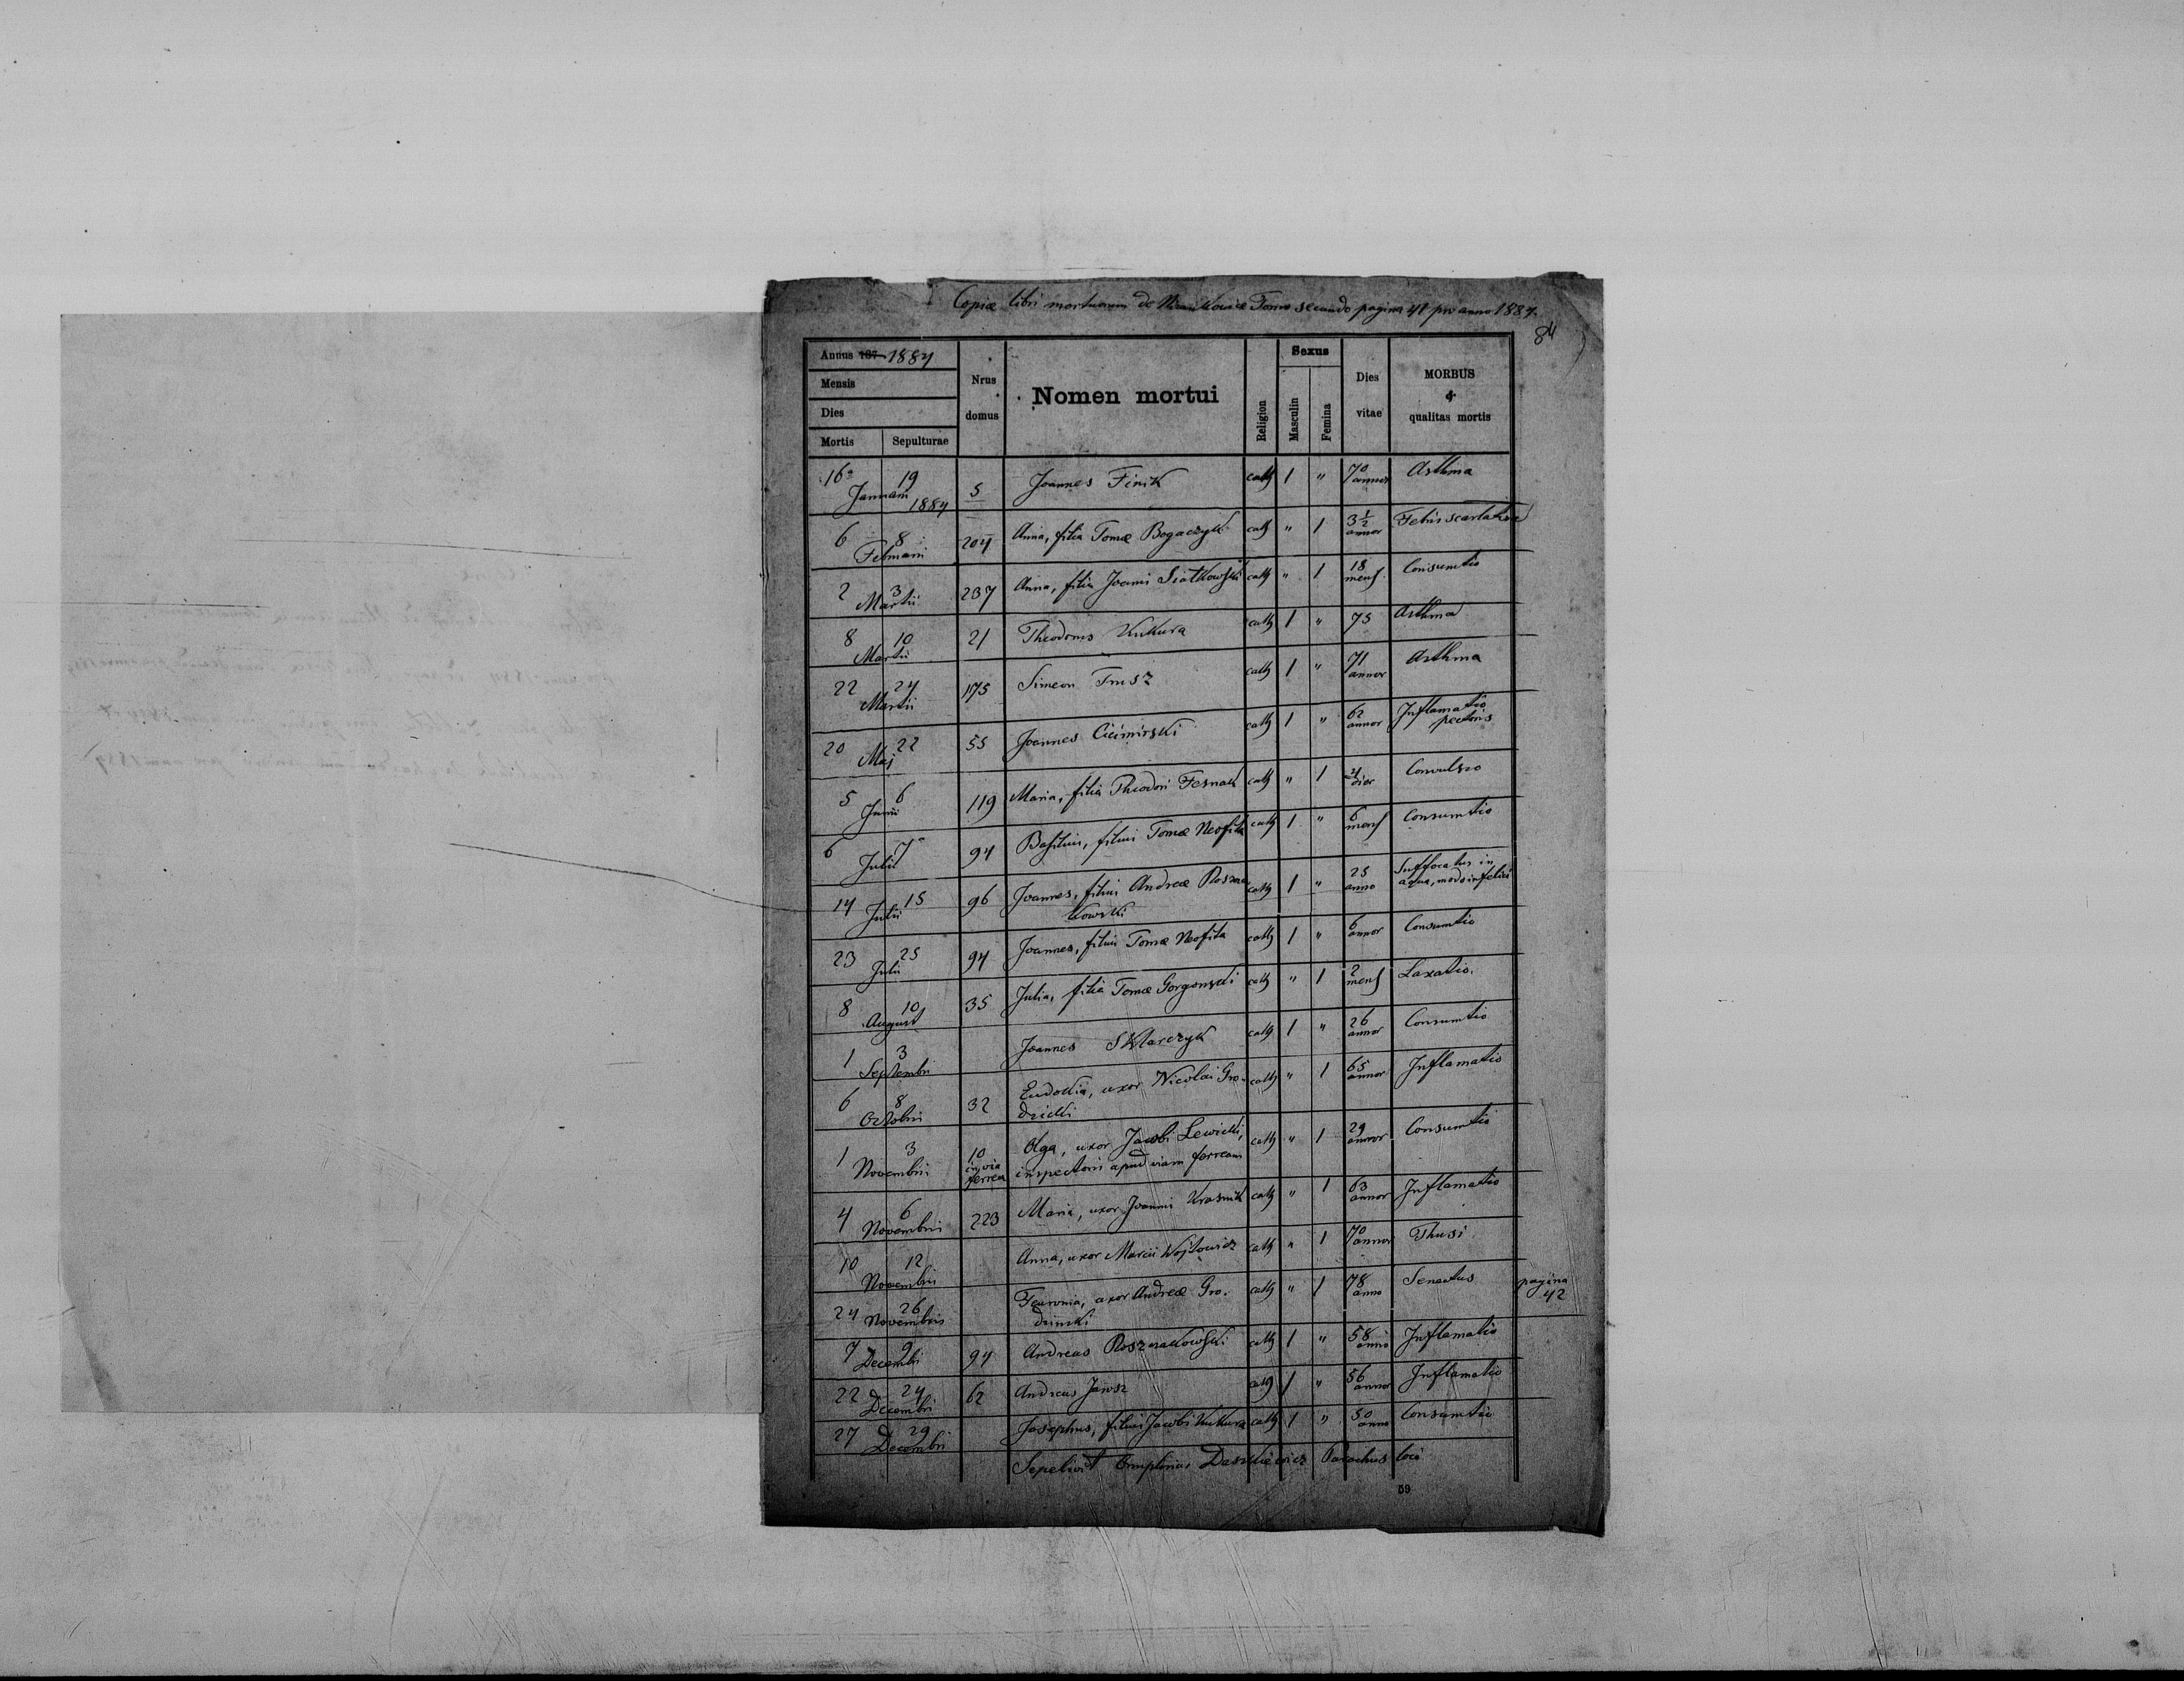 Copiæ libri mortuorum de Tomo secundo pagina 41 pro anno 1884.
84
Annus 187 1884
Mensis
Dies
Mortis Sepulturae
Nrus domus
Nomen mortui
Religion
Sexus
Masculin
Femina
Dies vitae
MORBUS & qualitas mortis
16a 19 Januarii 1884 5 Joannes Finik cath 1 " 70 annor Asthma
6 8 Februarii 204 Anna, filia Tomæ Bogaczyk cath " 1 3 1/2 annor Febris scarlatina
2 3 Martii 237 Anna, filia Joanni Siatkowski cath " 1 18 mens. Consumtio
8 10 Martii 21 Theodorus Kukura cath 1 " 75 Asthma
22 24 Martii 175 Simeon Trusz cath 1 " 71 annor Asthma
20 22 Maj 55 Joannes Ciemirski cath 1 " 62 annor Inflamatio
pectoris
5 6 Junii 119 Maria, filia Theodori Fesnak cath " 1 dier Convulsio
6 7 Julii 94 Basilius, filius Tomæ Neofita cath 1 " 6 mens Consumtio
14 15 Julii 96 Joannes, filius Andreæ Roszna- cath 1 " 25 anno Suffocatus in
kowski aqua, modo infelici
23 25 Julii 94 Joannes, filius Tomæ Neofita cath 1 " 6 annor Consumtio
8 10 August 35 Julia, filia Tomæ Gorgonski cath " 1 2 mens Laxatio.
1 3 Septembri Joannes Sklarczyk cath 1 " 26 annor Consumtio
6 8 Octobri 32 Eudokia, uxor Nicolai Gro- cath " 1 65 annor Inflamatio
dzicki
1 3 Novembrii 10 in via ferrea Olga, uxor Jacobi Lewicki, cath " 1 29 annor Consumtio
inspectoris apud viam ferream
4 6 Novembrii 223 Maria, uxor Joanni Krasnik cath " 1 63 annor Inflamatio
10 12 Novembrii Anna, uxor Marcii Wojtowicz cath " 1 70 annor Thusi
24 26 Novembris Fevronia, uxor Andreæ Gro- cath " 1 78 anno Senectus pagina 42
dzinski
7 9 Decembri 94 Andreas Rosznakowski cath 1 " 58 anno Inflamatio
22 24 Decembri 62 Andreas Jarosz cath 1 " 56 annor Inflamatio
27 29 Decembri Josephus, filius Jacobi Kukura cath 1 " 50 anno Consumtio
Sepelivit Daszkiewicz Parochus loci
59